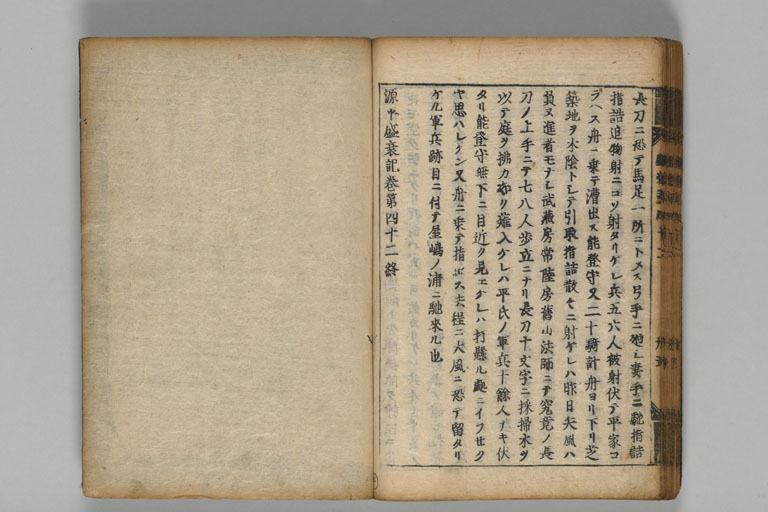 長刀ニ恐テ馬足一所ニトメス弓手ニ馳シ妻手ニ馳指詰
指詰追物射ニコソ射タリケレ兵五六人被射伏テ平家コ
ラヘス舟ニ乗テ漕出ス能登守又二十騎計舟ヨリ下リ芝
築地ヲ木陰トシテ引取指詰散々ニ射ケレハ昨日矢風ハ
負又進者モナシ武蔵房常陸房舊山法師ニテ究竟ノ長
刀ノ上手ニテ七八人歩立ニナリ長刀十文字ニ採掃木ヲ
以テ庭ヲ拂カ如ク薙入ケレハ平氏ノ軍兵十餘人ナキ伏
タリ能登守無下ニ目近ク見エケレハ打懸ル處ニイフセク
ヤ思ハレケン又舟ニ乗テ指出ス夫程ニ大風ニ恐テ留タリ
ケル軍兵跡目ニ付テ屋嶋ノ浦ニ馳来ル也
源平盛衰記巻第四十二終